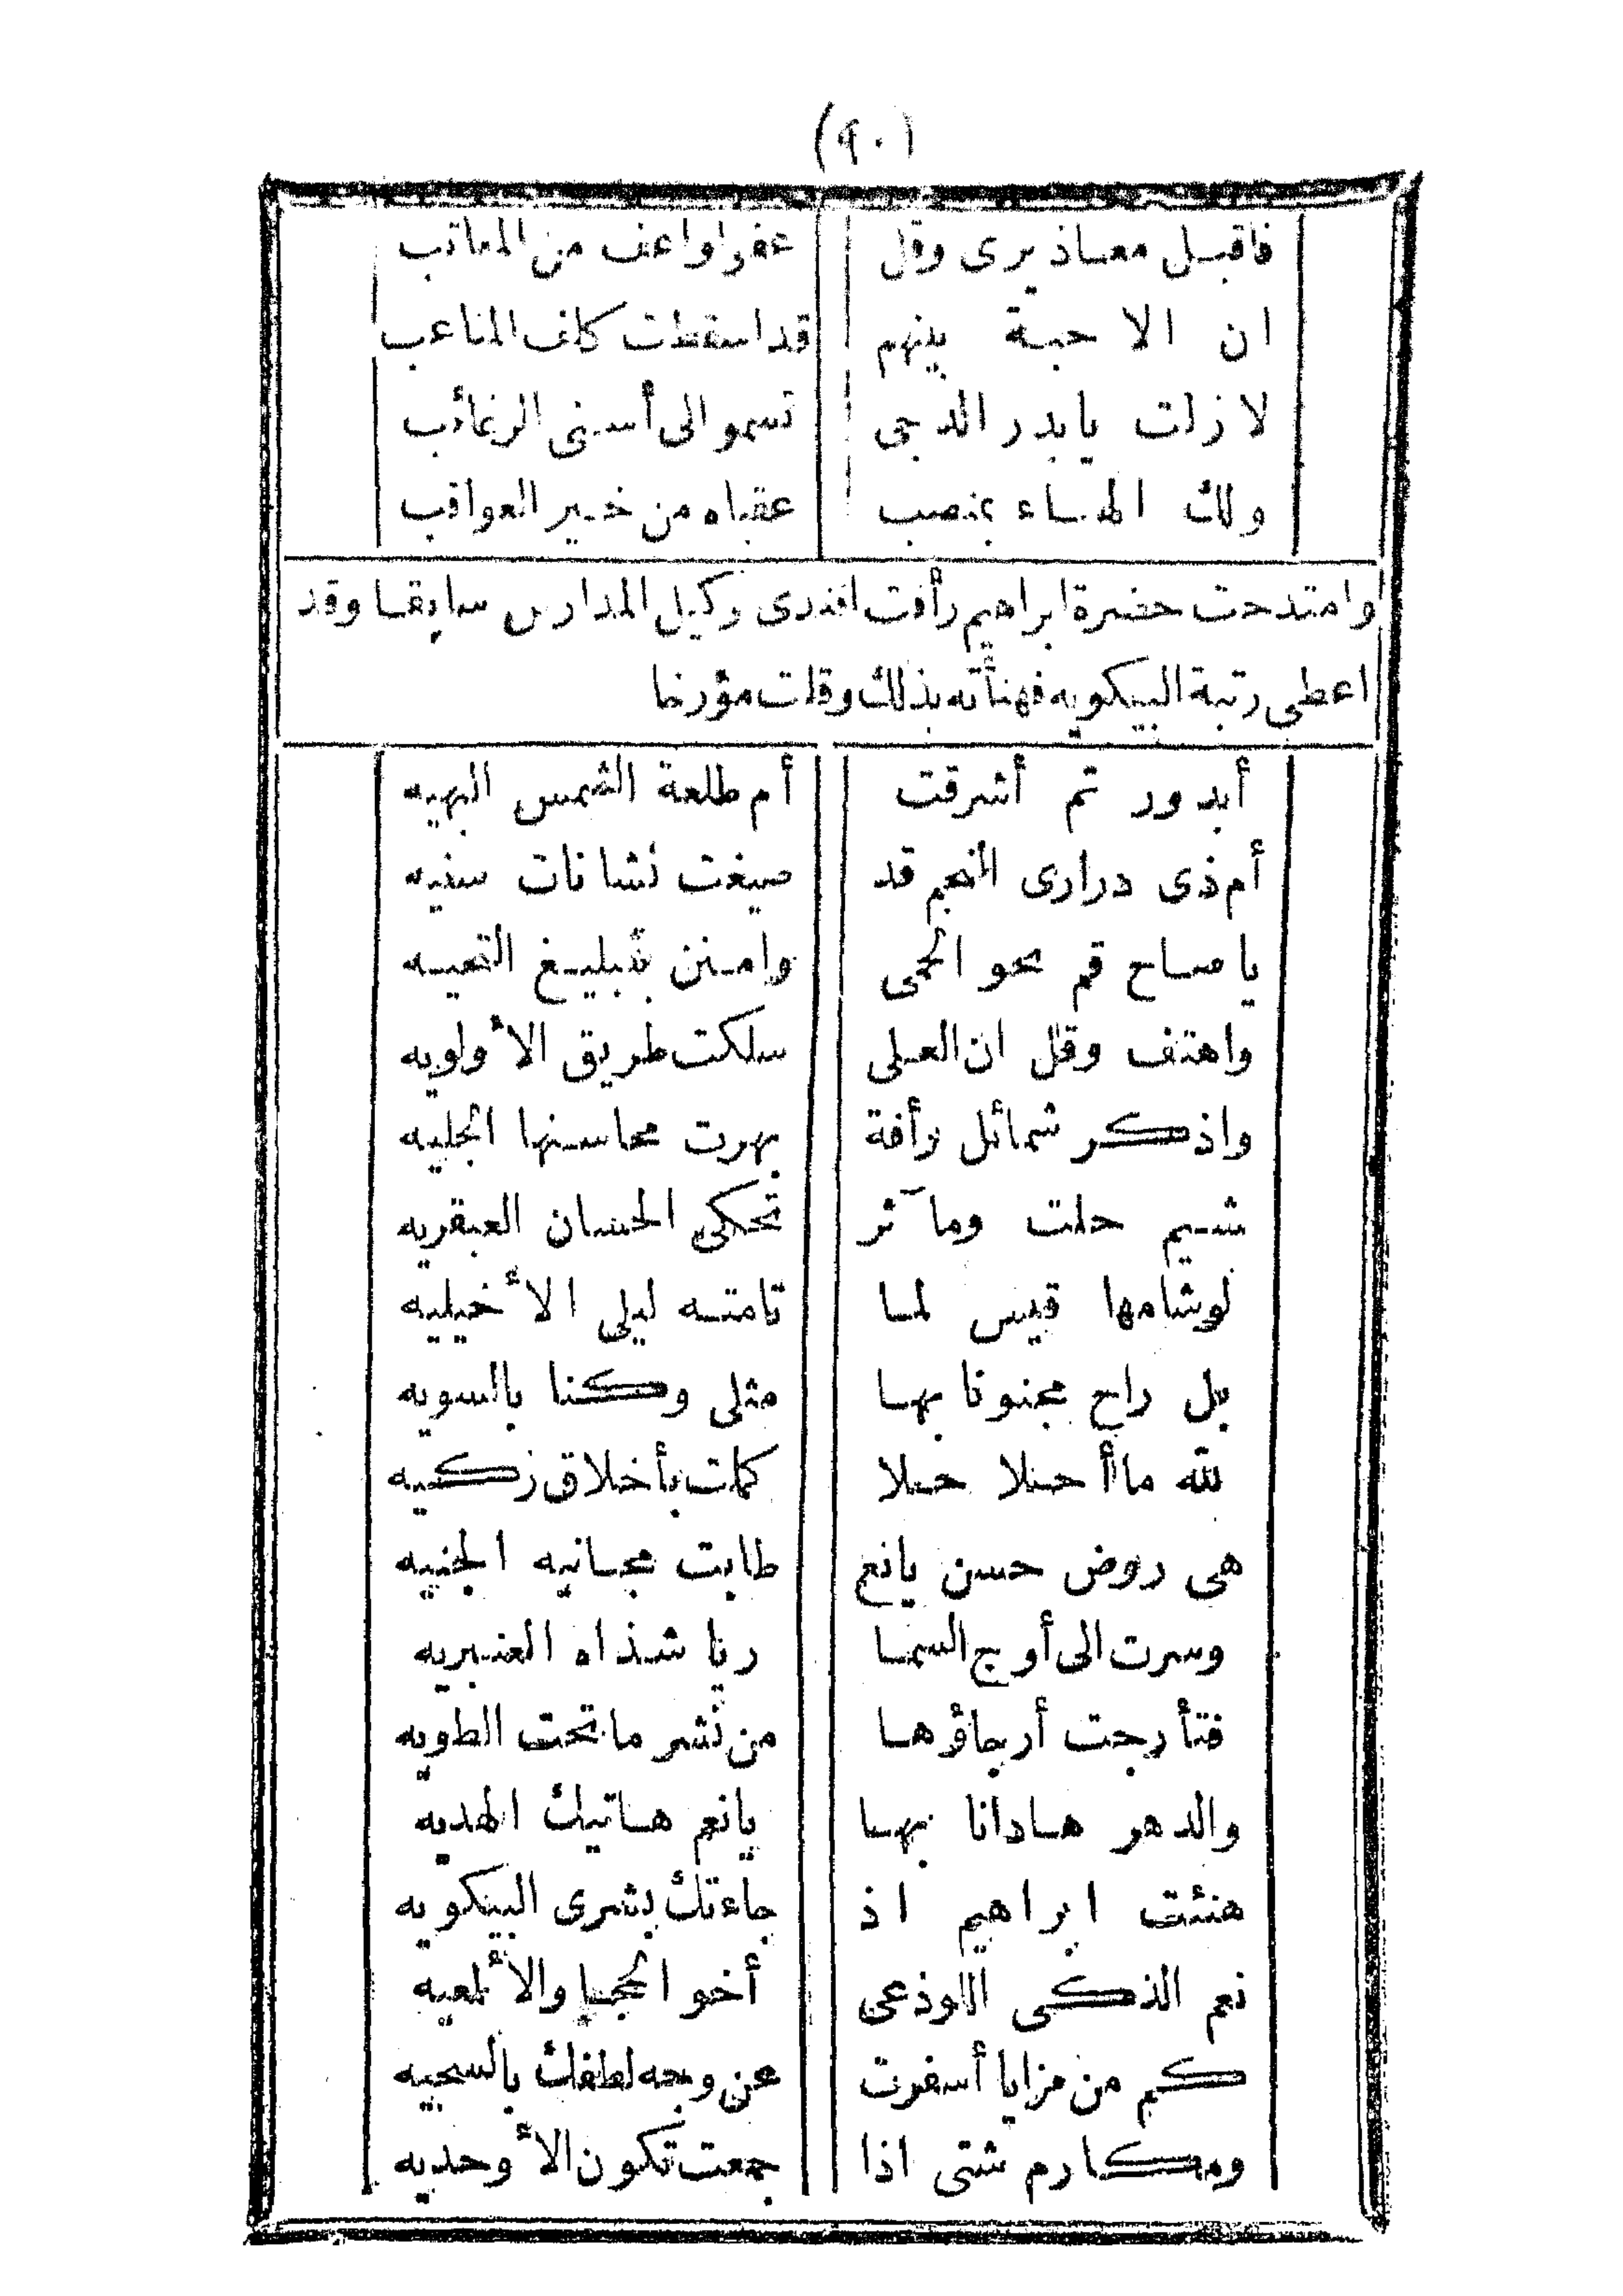 (٩٠)
فاقبل معاذيرى وقل عفوا واعف من المعاتب
ان الاحبة بينهم قد اسقطت كلف المناعب
لازلت يابدر الدجى تسمو الى أسنى الرغائب
ولك الهناء بمنصب عقباه من خير العواقب
وامتدحت حضرة ابراهيم رأفت افندى وكيل المدارس سابقا وقد
اعطى رتبة البيكويه فهنأته بذلك وقلت مؤرخا
أبدور تم أشرقت أم طلعة الشمس البهيه
أم ذى درارى النجم قد صيغت نشانات سنيه
يا صاح قم نحو الحمى وامنن بتبليغ التحيه
واهتف وقل ان العلى سلكت طريق الأولويه
واذكر شمائل رأفة بهرت محاسنها الجليه
شيم حلت ومآثر تحكى الحسان العبقريه
لوشامها قيس لما تامته ليلى الأخيليه
بل راح مجنونا بها مثلى وكنا بالسويه
لله ما أحلا حلا كملت بأخلاق زكيه
هى روض حسن يانع طابت مجانيه الجنيه
وسرت الى أوج السما ريا شذاه العنبريه
فتأرجت أرجاؤها من نشر ما تحت الطويه
والدهر هادانا بها يانعم هاتيك الهديه
هنئت ابراهيم اذ جاءتك بشرى البيكويه
نعم الذكى اللوذعى أخو الحجا والألمعيه
كم من مزايا أسفرت عن وجه لطفك بالسجيه
ومكارم شتى اذا جمعت تكون الأوحديه